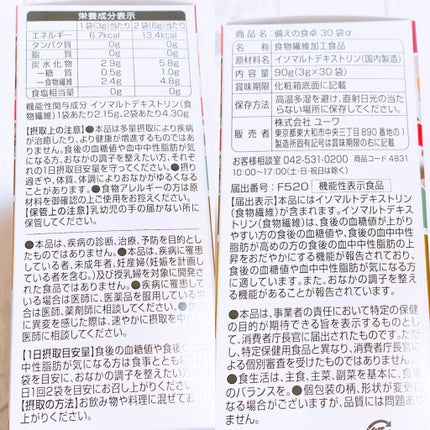 栄養成分表示
1袋(3g)当たり 2袋(6g)当たり
エネルギー 6.7kcal 13.4kcal
タンパク質 0g 0g
脂質 0g 0g
炭水化物 2.9g 5.8g
－糖質 0.5g 1.0g
－食物繊維 2.4g 4.8g
食塩相当量 0g 0g
機能性関与成分 イソマルトデキストリン
(食物繊維)1袋あたり2.15g、2袋あたり4.30g
【摂取上の注意】●本品は多量摂取により疾病
が治癒したり、より健康が増進するものではあり
ません。●食後の血糖値や血中中性脂肪が気に
なる方、おなかの調子を整えたい方、それぞれ
の1日摂取目安量を守ってください。●摂り
過ぎや、体質、体調によりおなかがゆるくなる
ことがあります。●食物アレルギーの方は原
材料を御確認の上ご使用をお控えください。
【保管上の注意】乳幼児の手の届かない所に
保管してください。
●本品は、疾病の診断、治療、予防を目的とし
たものではありません。●本品は、疾病に罹患
している者、未成年者、妊産婦(妊娠を計画し
ている者を含む。)及び授乳婦を対象に開発さ
れた食品ではありません。●疾病に罹患して
いる場合は医師に、医薬品を服用している場
合は医師、薬剤師に相談してください。●体
に異変を感じた際は、速やかに摂取を中
し医師に相談してください。
【1日摂取目安量】食後の血糖値や食後
中中性脂肪が気になる方は食事ととも
袋を目安に、おなかの調子を整えたい方
日1回2袋を目安にお召し上がりください
【摂取の方法】お飲み物や料理に混ぜてお
し上がりください。
商品名 備えの食卓 30袋α
名称 食物繊維加工食品
原材料名 イソマルトデキストリン(国内製造)
内容量 90g(3g×30袋)
賞味期限 化粧箱底面に記載
保存方法 高温多湿を避け、直射日光の当た
らない場所に保存してください。
販売者 株式会社 ユーワ
東京都東大和市中央三丁目890番地の1
製造所固有記号は賞味期限の右に記載
お客様相談室 042-531-0200 商品コード 4831
10:00～17:00(土日祝祭日を除く)
届出番号:F520 機能性表示食品
【届出表示】本品にはイソマルトデキストリン
(食物繊維)が含まれます。イソマルトデキスト
リン(食物繊維)は、食後の血糖値が上がり
やすい方の食後の血糖値や、食後の血中中性
脂肪が高めの方の食後の血中中性脂肪の
上昇をおだやかにする機能が報告されており、
食後の血糖値や血中中性脂肪が気になる方
に適しています。また、おなかの調子を整え
る機能があることが報告されています。
●本品は、事業者の責任において特定の保健
の目的が期待できる旨を表示するものとし
て、消費者庁長官に届出されたものです。ただ
し、特定保健用食品と異なり、消費者庁長官に
よる個別審査を受けたものではありません。
●食生活は、主食、主菜、副菜を基本に、食事
のバランスを。●個包装の柄、形状が変更に
なる場合がございますが、品質には問題あり
ません。